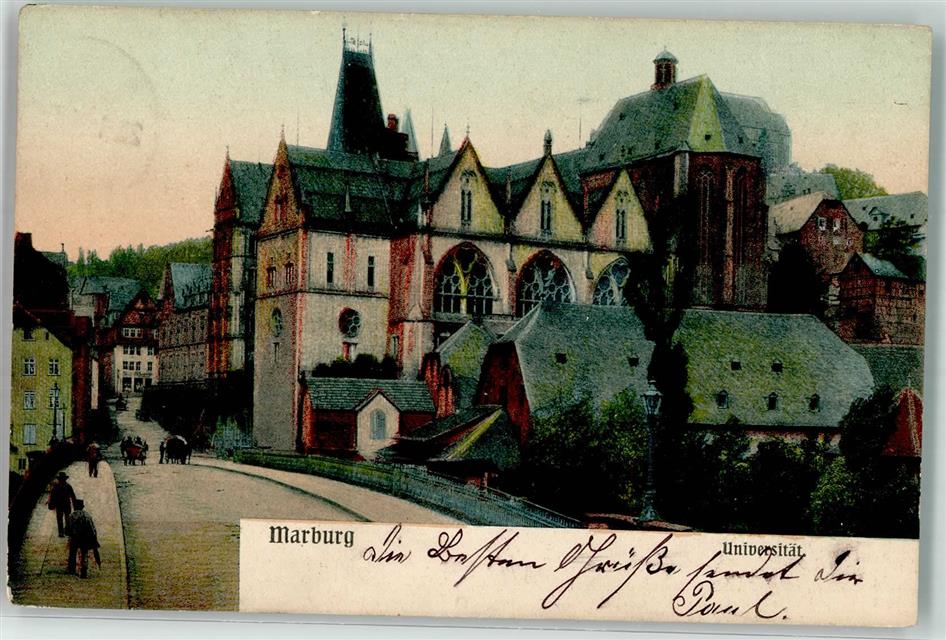 Marburg
Universität.
Die Besten Grüße sendet Dir
Paul.